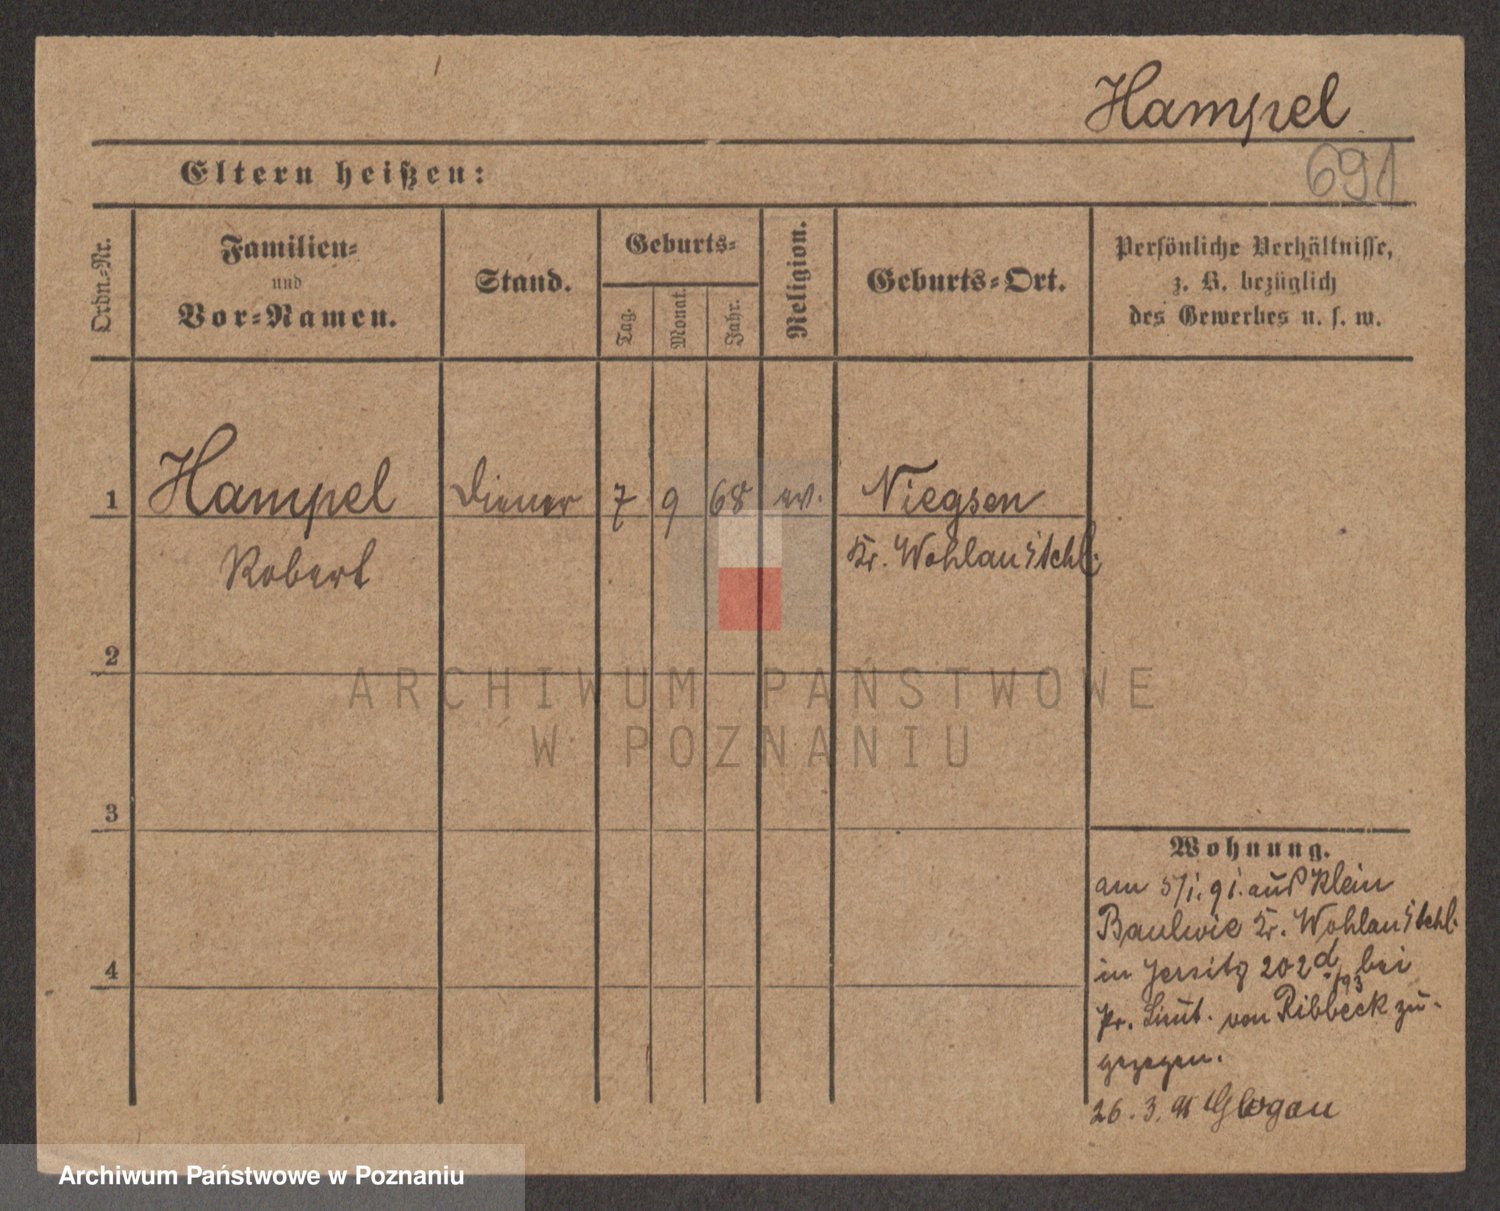 Hampel
691
Eltern heißen:
Ordn.-Nr.
Familien-
und
Vor-Namen.
Stand.
Geburts-
Tag.
Monat.
Jahr.
Religion.
Geburts-Ort.
Persönliche Verhältnisse,
z. B. bezüglich
des Gewerbes u. s. w.
1 Hampel Diener 7 9 68 ev. Niegsen
Robert Kr. Wohlau
2
ARCHIWUM PAŃSTWOWE
W POZNANIU
3
4
Wohnung.
am 5/1. 91. aus Klein
Baulwie Kr. Wohlau
in Jersitz 202d bei
Pr. Lieut. von Ribbeck zu-
gezogen.
26. 3. Glogau
Archiwum Państwowe w Poznaniu